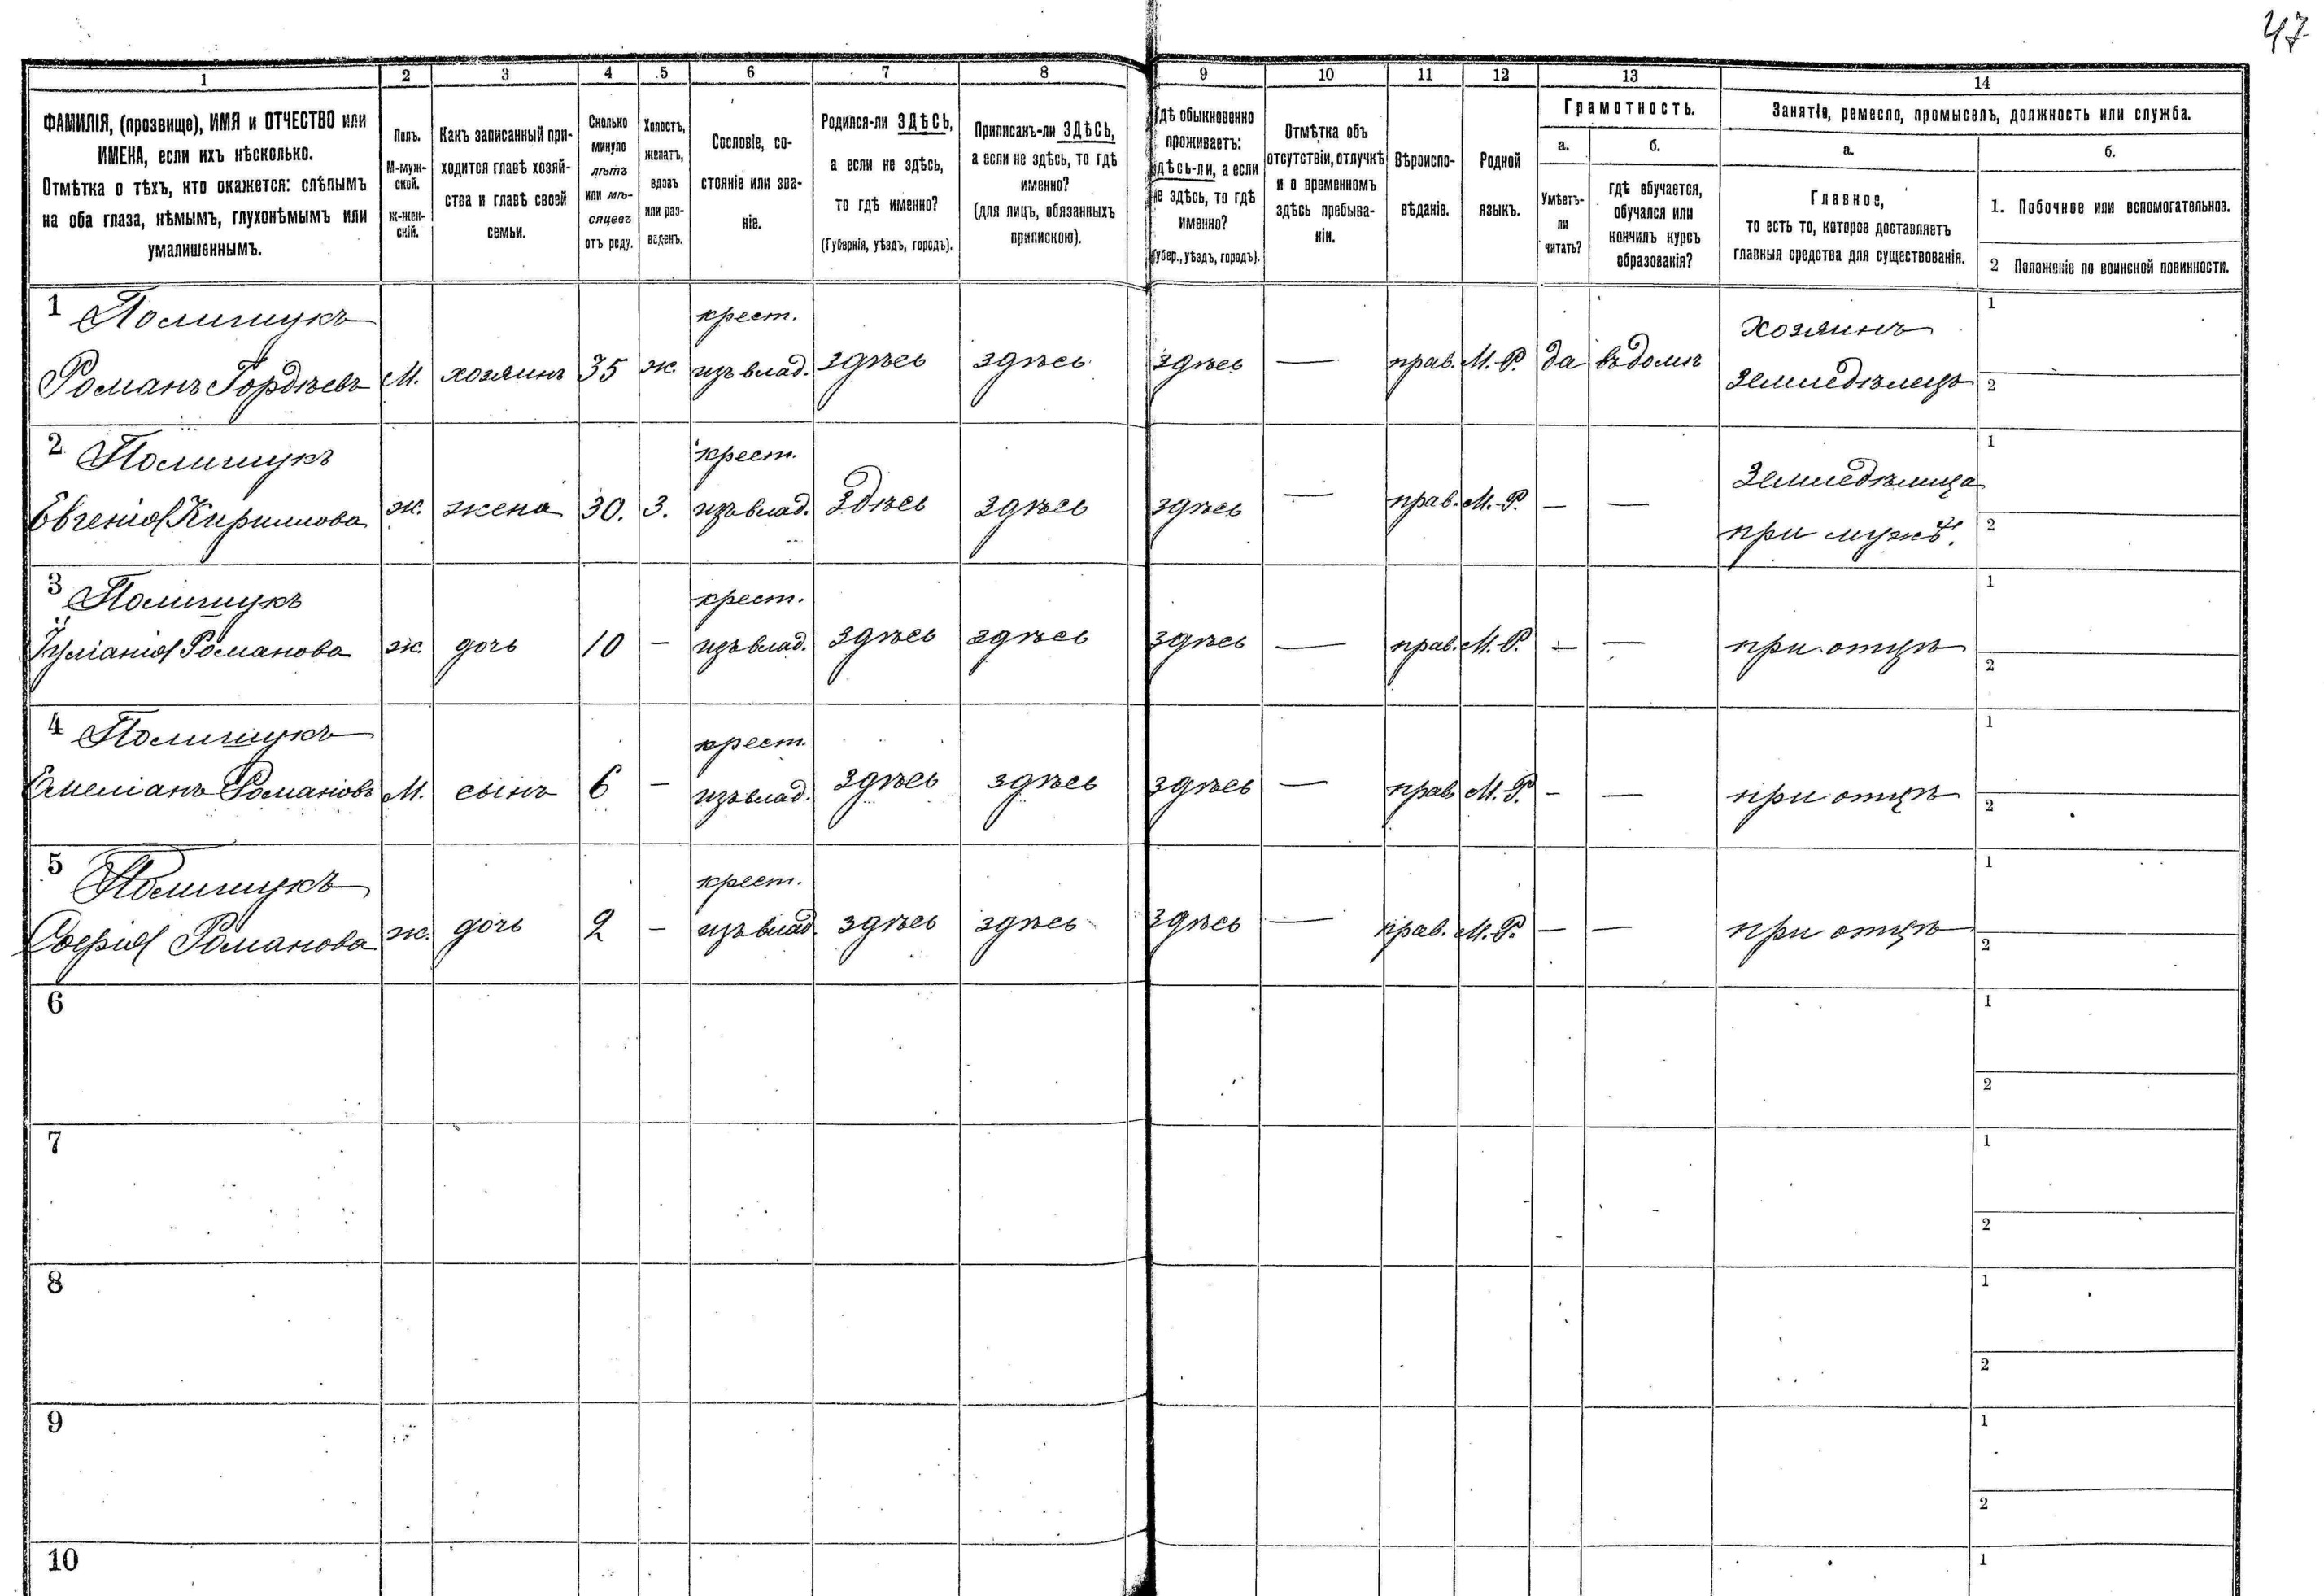 47
1 2 3 4 5 6 7 8 9 10 11 12 13 14
ФАМИЛІЯ, (прозвище), ИМЯ и ОТЧЕСТВО или
ИМЕНА, если ихъ нѣсколько.
Отмѣтка о тѣхъ, кто окажется: слѣпымъ
на оба глаза, нѣмымъ, глухонѣмымъ или
умалишеннымъ.
Полъ.
М-муж-
ской.
ж-жен-
скій.
Какъ записанный при-
ходится главѣ хозяй-
ства и главѣ своей
семьи.
Сколько
минуло
лѣтъ
или мѣ-
сяцевъ
отъ роду.
Холостъ,
женатъ,
вдовъ
или раз-
веденъ.
Сословіе, со-
стояніе или зва-
ніе.
Родился-ли ЗДѢСЬ,
а если не здѣсь,
то гдѣ именно?
(Губернія, уѣздъ, городъ).
Приписанъ-ли ЗДѢСЬ,
а если не здѣсь, то гдѣ
именно?
(для лицъ, обязанныхъ
припискою).
гдѣ обыкновенно
проживаетъ:
здѣсь-ли, а если
не здѣсь, то гдѣ
именно?
(губер., уѣздъ, городъ).
Отмѣтка объ
отсутствіи, отлучкѣ
и о временномъ
здѣсь пребыва-
ніи.
Вѣроиспо-
вѣданіе.
Родной
языкъ.
Грамотность.
а.
Умѣетъ-
ли
читать?
б.
гдѣ обучается,
обучался или
кончилъ курсъ
образованія?
Занятіе, ремесло, промыселъ, должность или служба.
а.
Главное,
то есть то, которое доставляетъ
главныя средства для существованія.
б.
1. Побочное или вспомогательное.
2 Положеніе по воинской повинности.
1 Полищукъ крест. хозяинъ 1
Романъ Гордѣевъ М. хозяинъ 35 ж. изъ влад. здѣсь здѣсь здѣсь — прав. М.-Р. да въ домѣ земледѣлецъ 2
2 Полищукъ крест. земледѣлица 1
Евгенія Кириллова ж. жена 30. з. изъ влад. здѣсь здѣсь здѣсь — прав. М.-Р. — — при мужѣ. 2
3 Полищукъ крест. 1
Іуліанія Романова ж. дочь 10 — изъ влад. здѣсь здѣсь здѣсь — прав. М.-Р. — — при отцѣ 2
4 Полищукъ крест. 1
Емеліанъ Романовъ М. сынъ 6 — изъ влад. здѣсь здѣсь здѣсь — прав. М.-Р. — — при отцѣ 2
5 Полищукъ крест. 1
Софія Романова ж. дочь 2 — изъ влад. здѣсь здѣсь здѣсь — прав. М.-Р. — — при отцѣ 2
6 1
2
7 1
2
8 1
2
9 1
2
10 1